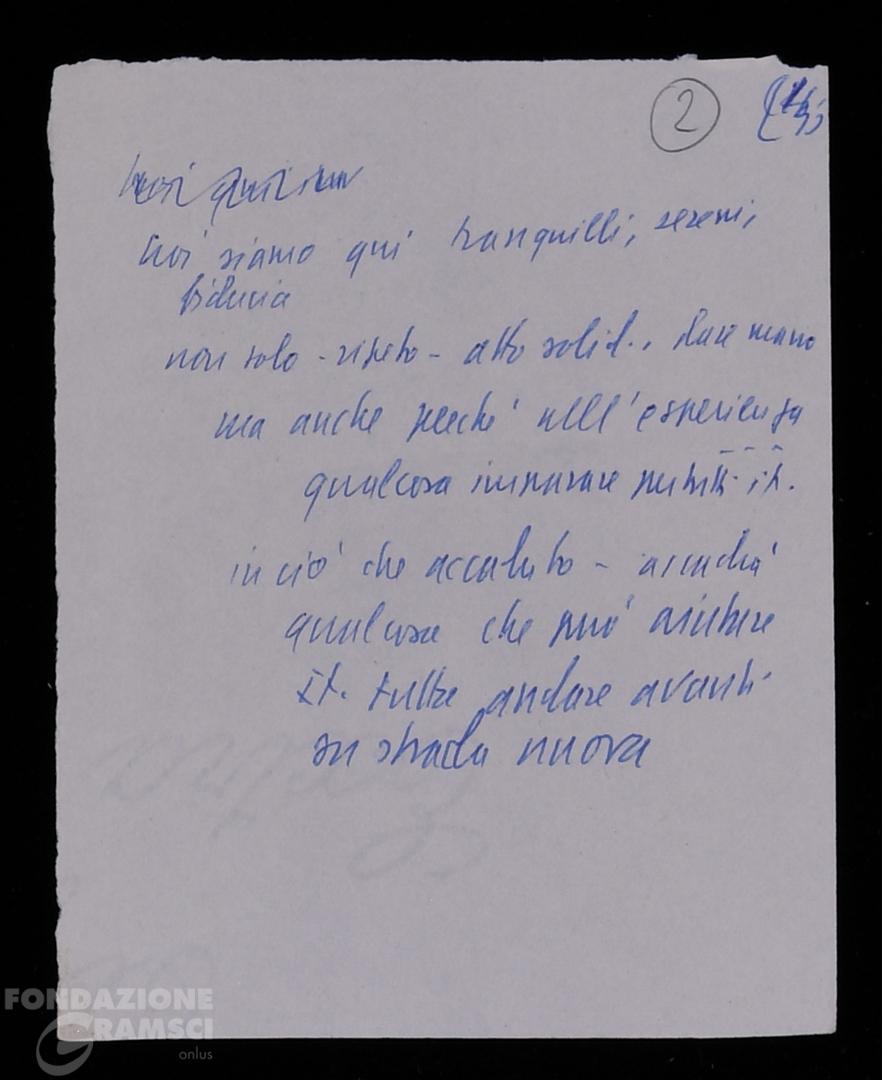 2
noi siamo qui tranquilli, sereni,
fiducia
non solo - ripeto - atto solid., dare mano
ma anche perché nell'esperienza
qualcosa imparare it.
in ciò che accaduto - accadrà
qualcosa che può aiutare
it. tutta andare avanti
su strada nuova
FONDAZIONE
GRAMSCI
onlus